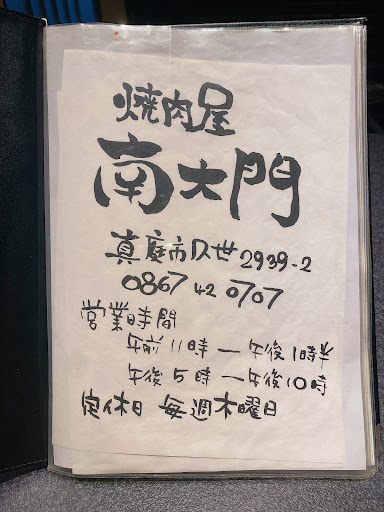 焼肉屋
南大門
真庭市久世2939-2
0867 42 0707
営業時間
午前11時―午後1時半
午後5時―午後10時
定休日 毎週木曜日